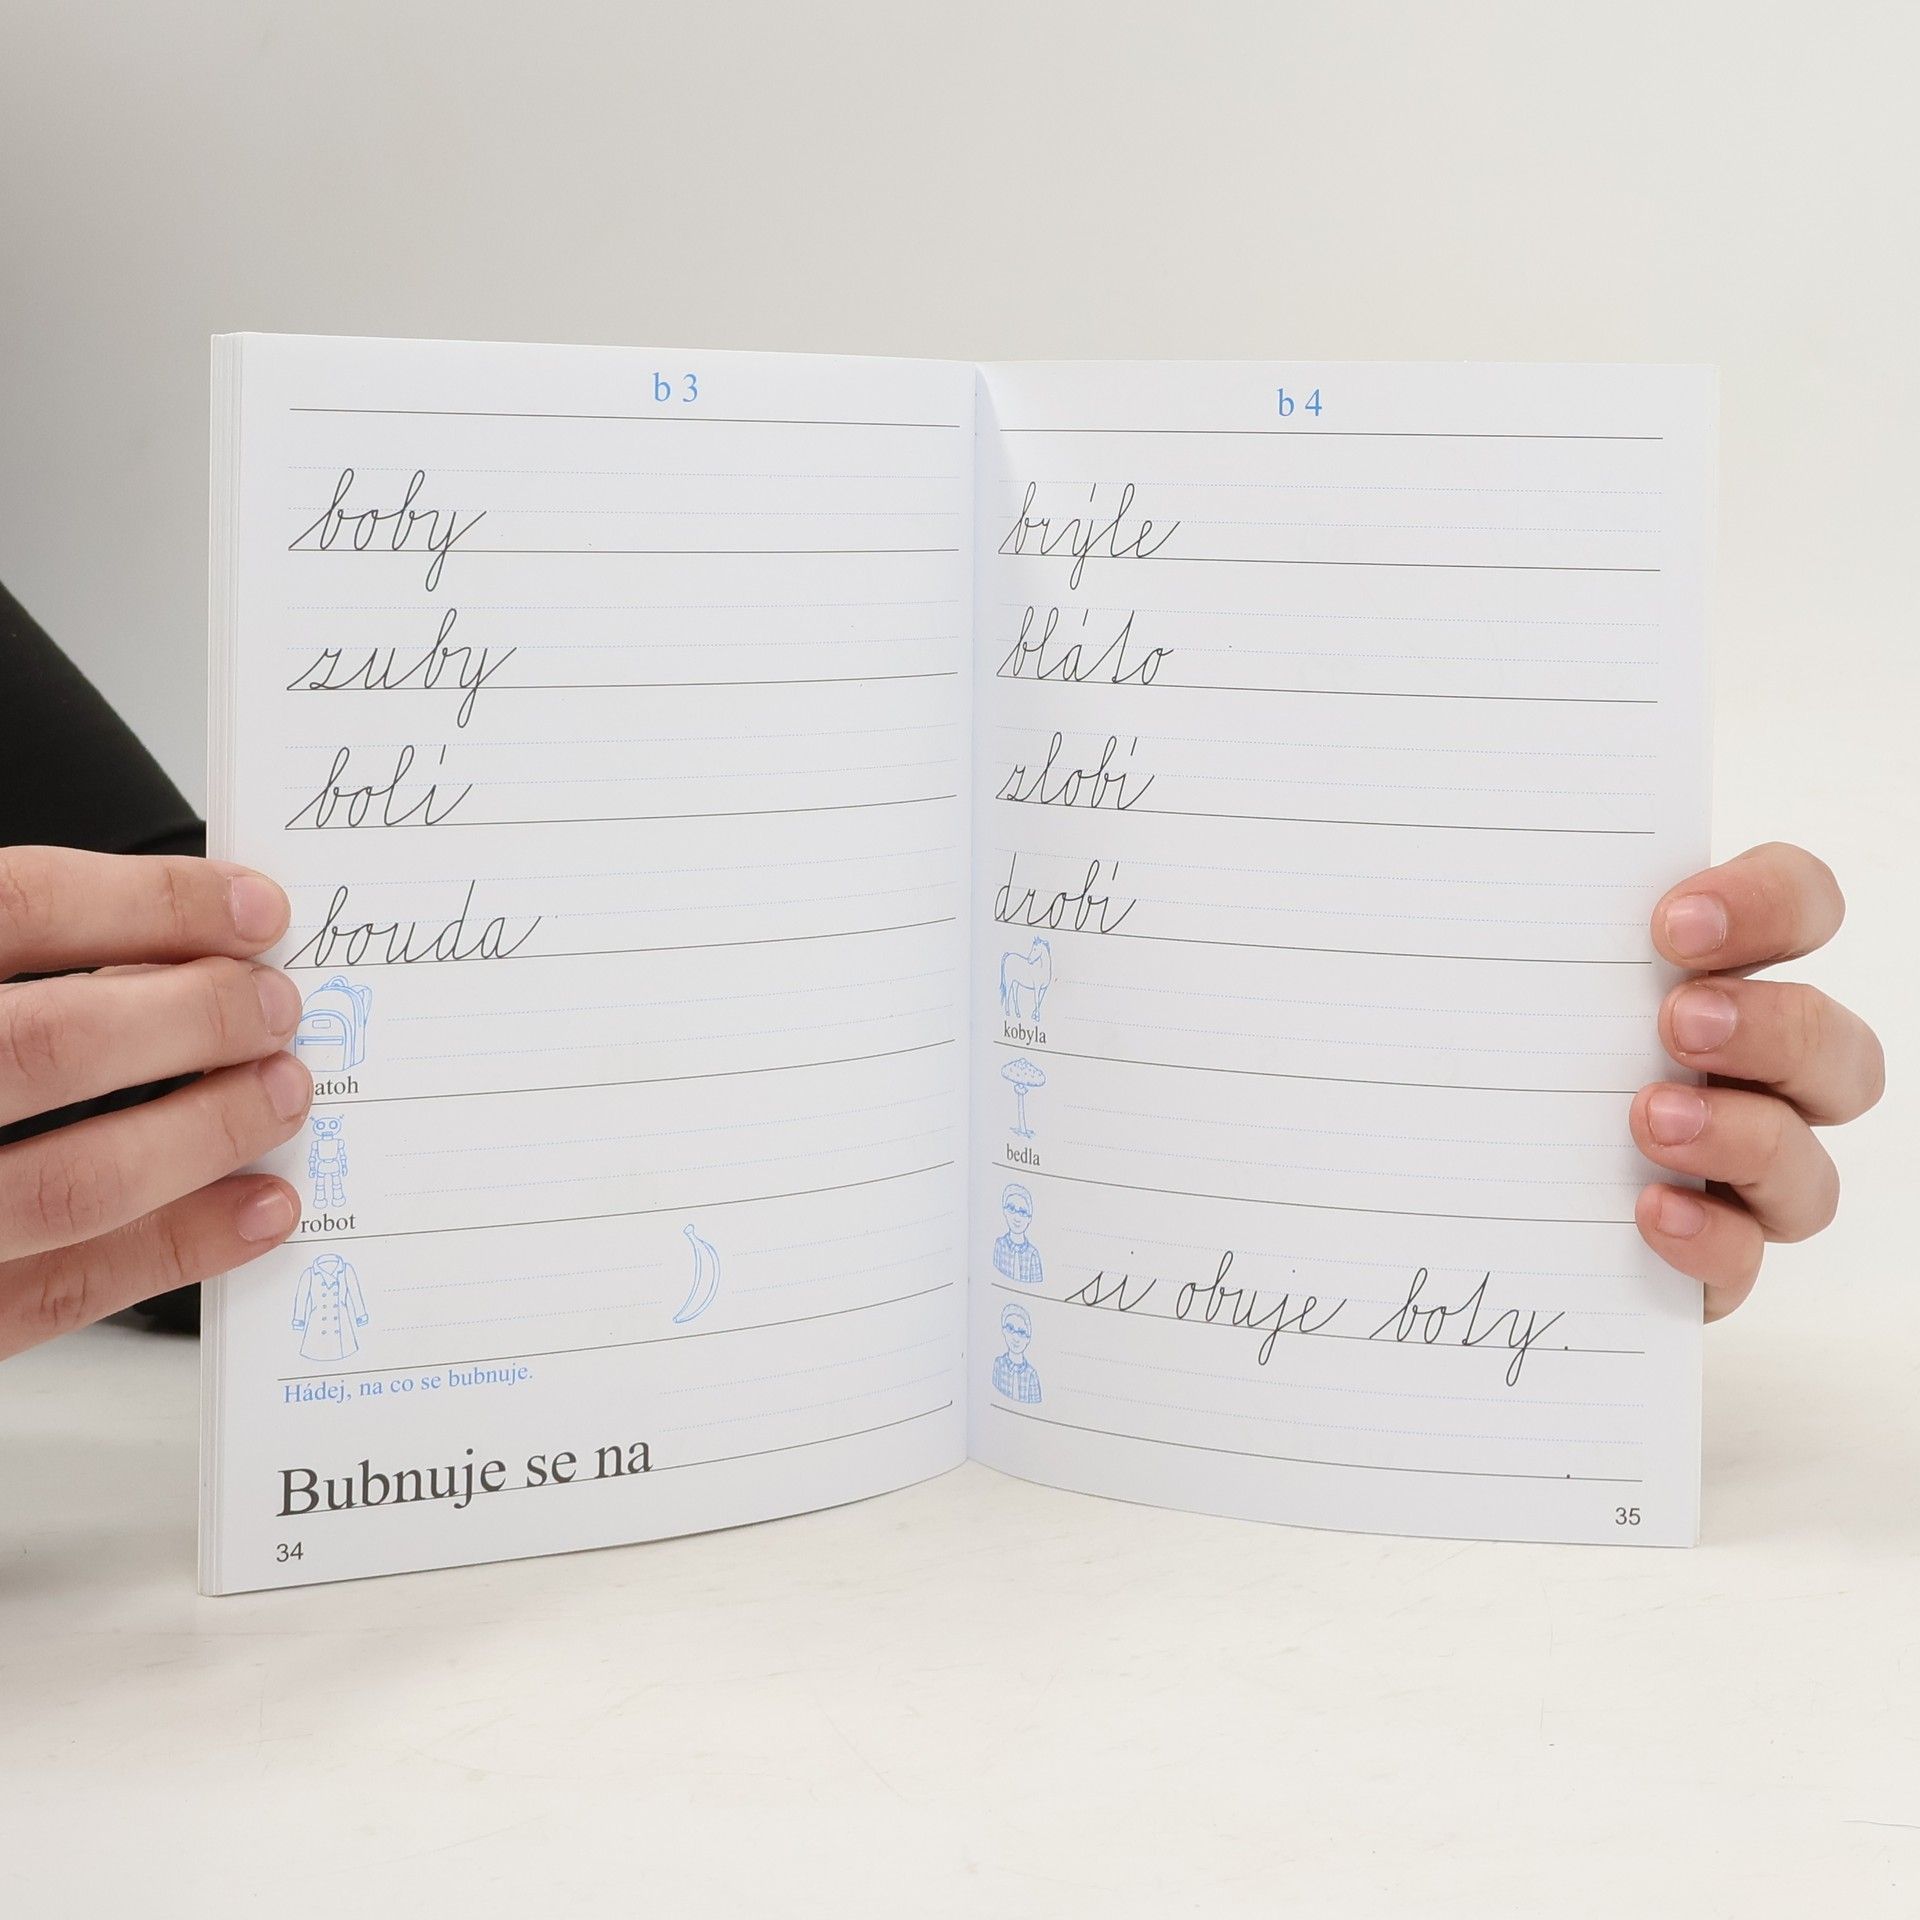 b 3
boby
zuby
bolí
bouda
atoh
robot
Hádej, na co se bubnuje.
Bubnuje se na
.
34
b 4
brýle
bláto
zlobí
drobí
kobyla
bedla
si obuje boty.
.
35